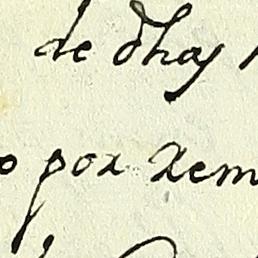 de dhas
por rem